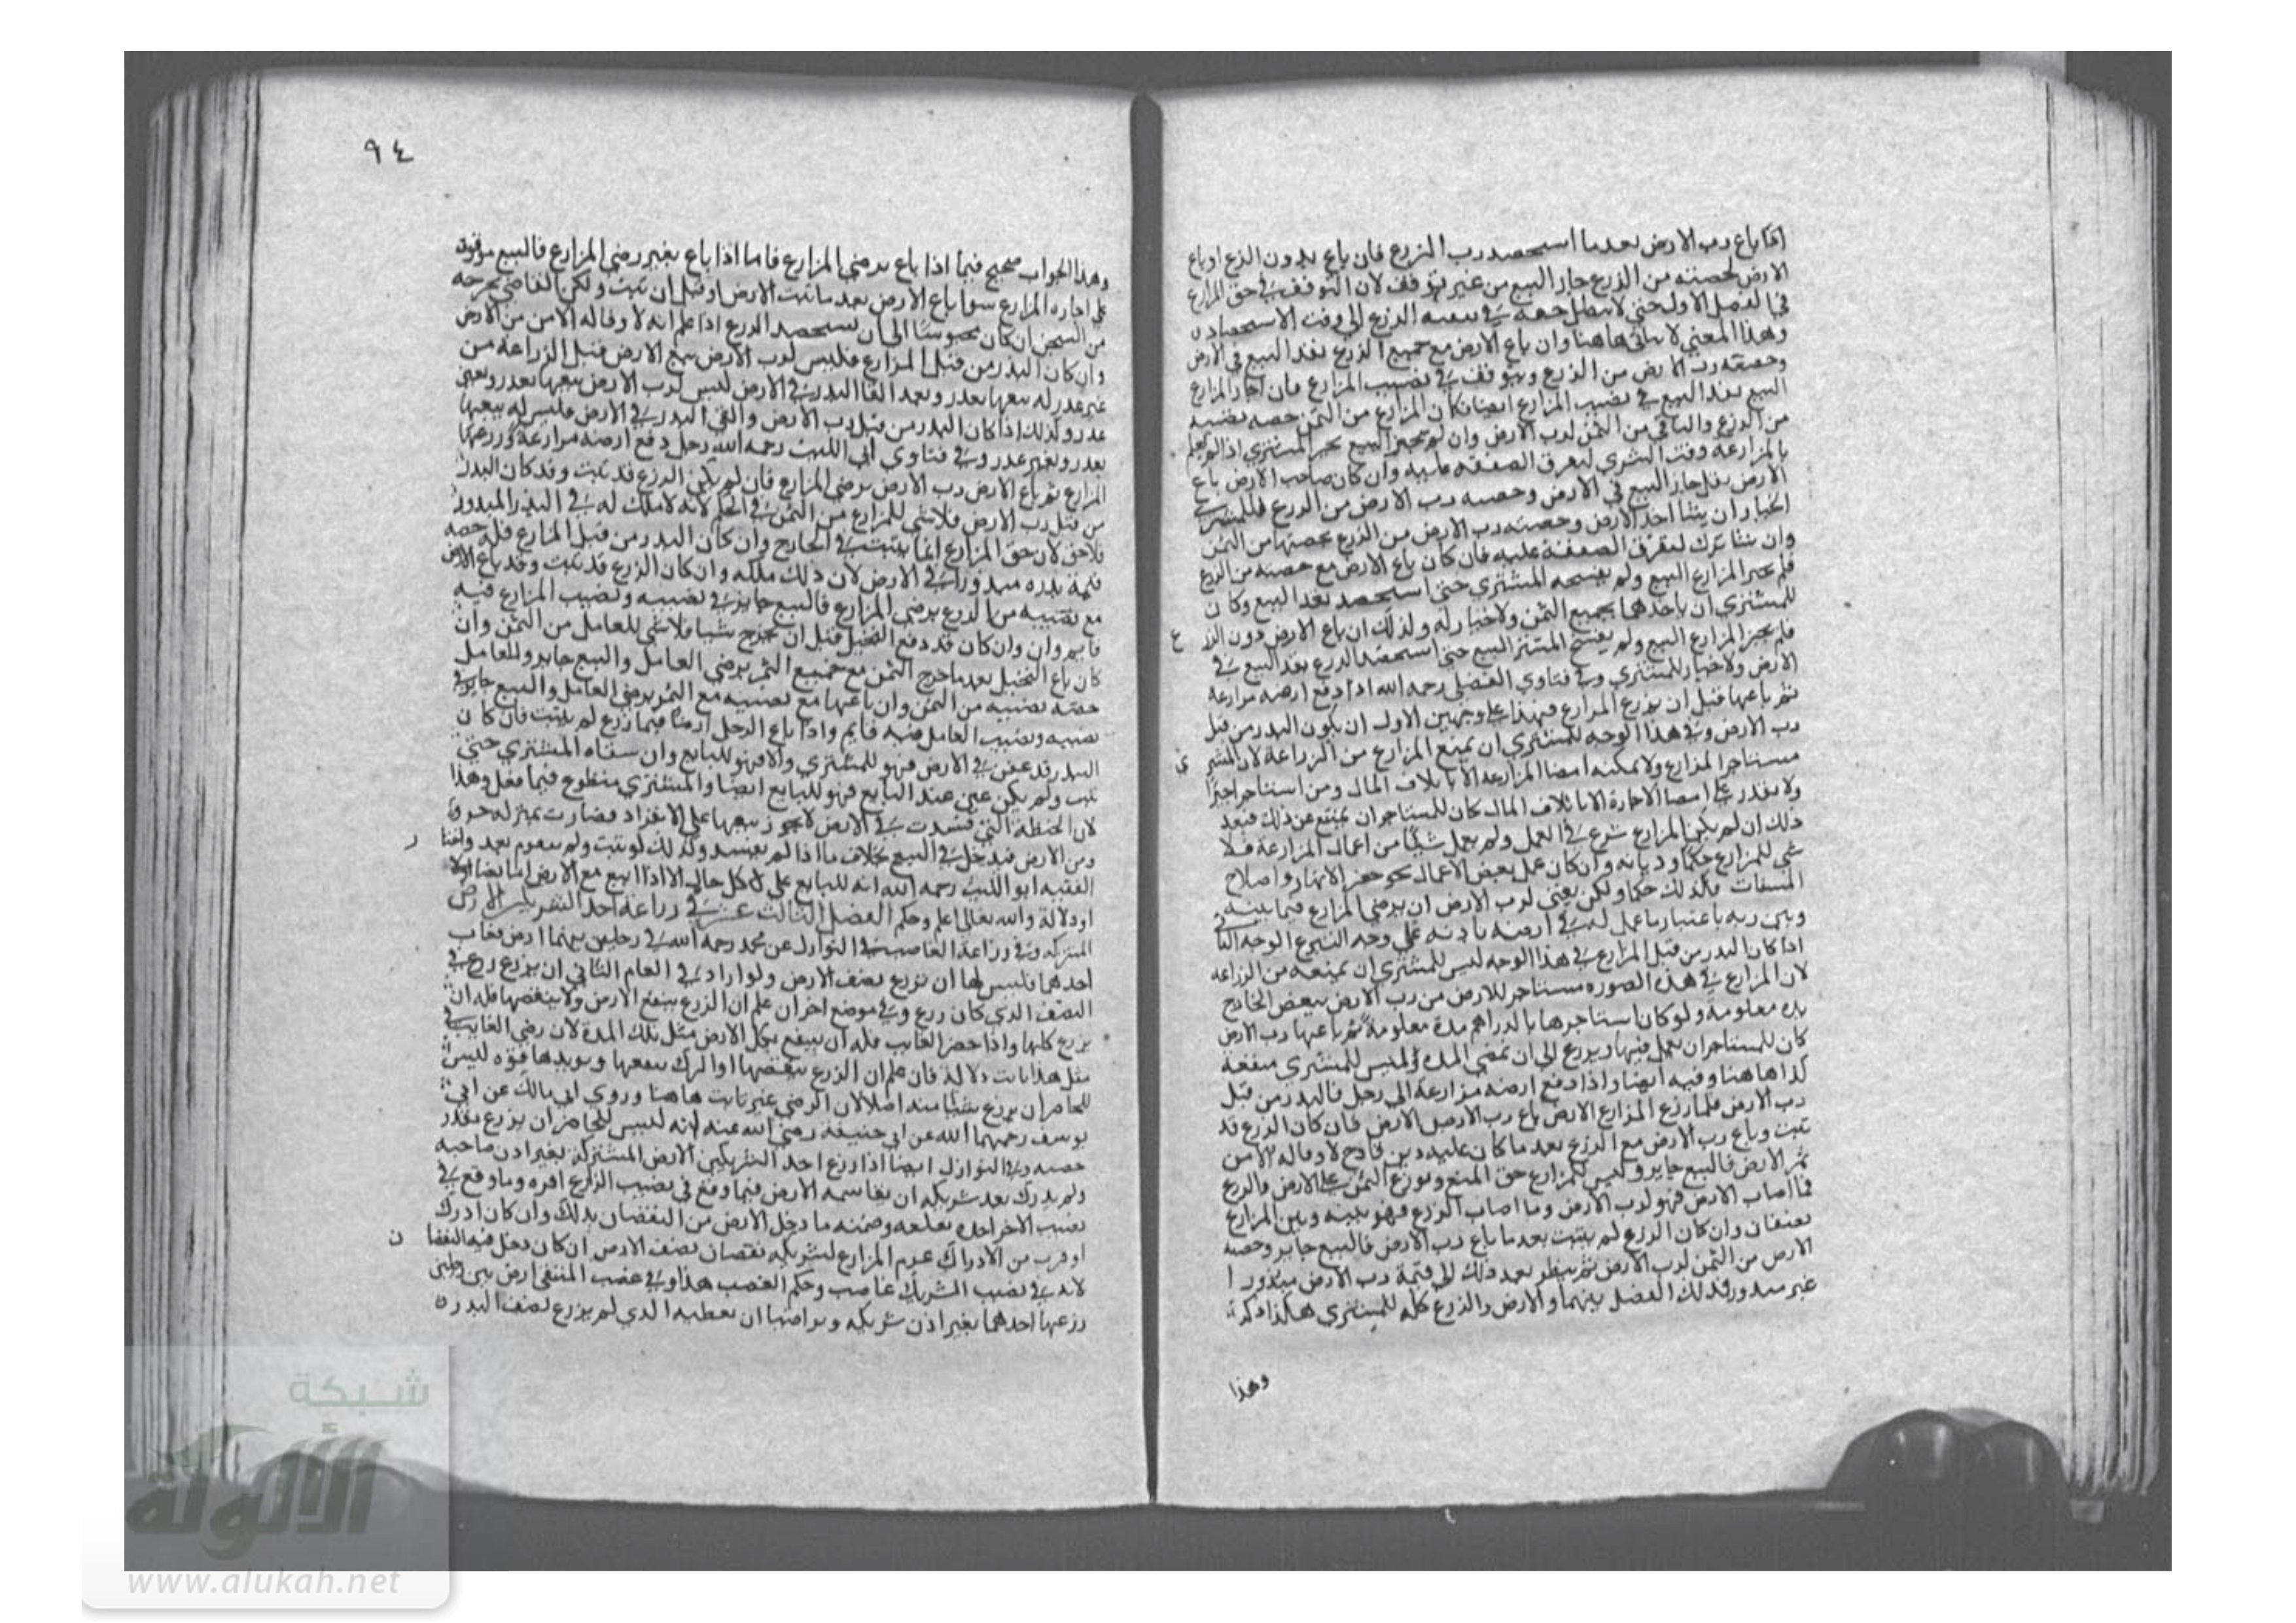 اذا باع رب الارض بعدما استحصد رب الزرع فان باع بدون الزرع او باع
الارض بحصته من الزرع جاز البيع من غير توقف لان التوقف في حق المزارع
في الفصل الاول حتى لا يبطل حقه في تبقية الزرع الى وقت الاستحصاد
وهذا المعنى لا يتاتى هاهنا وان باع الارض مع جميع الزرع نفذ البيع في الارض
وحصة رب الارض من الزرع ويتوقف في نصيب المزارع فان اجاز المزارع
البيع نفذ البيع في نصيب المزارع ايضا فكان للمزارع من الثمن حصة نصيبه
من الزرع والباقي من الثمن لرب الارض وان لم يجز البيع يخير المشتري اذا لم يعلم
بالمزارعة وقت الشرى لتفرق الصفقة عليه وان كان صاحب الارض باع
الارض جاز البيع في الارض وحصه رب الارض من الزرع فللمشتري
الخيار ان يشا اخذ الارض وحصته رب الارض من الزرع بحصتها من الثمن
وان شا ترك لتفرق الصفقة عليه فان كان باع الارض مع حصته من الزرع
فلم يجز المزارع البيع ولم يفسخه المشتري حتى استحصد نفذ البيع وكان
للمشتري ان ياخذهما بجميع الثمن ولا خيار له وكذلك ان باع الارض دون الزرع
فلم يجز المزارع البيع ولم يفسخ المشتر البيع حتى استحصد الزرع نفذ البيع في
الارض ولا خيار للمشتري وفي فتاوي الفضلي رحمه الله اذا دفع ارضه مزارعة
ثم باعها قبل ان يزرع المزارع فهذا على وجهين الاول ان يكون البذر من قبل
رب الارض وفي هذا الوجه للمشتري ان يمنع المزارع من الزراعة لان المشتري
مستاجر المزارع ولا يمكنه امضا المزارعة الا باتلاف المال ومن استاجر اجيرا
ولا يقدر على امضا الاجارة الا باتلاف المال كان للمستاجر ان يمتنع عن ذلك فبعد
ذلك ان لم يكن المزارع شرع في العمل ولم يعمل شيئا من اعمال المزارعة فلا
شي للمزارع حكما وديانه وان كان عمل بعض الاعمال نحو حفر الانهار واصلاح
المسنات فكذلك حكما ولكن يفتى لرب الارض ان يرضي المزارع فيما بينه
وبين ربه باعتبار ما عمل له في ارضه باذنه على وجه التبرع الوجه الثاني
اذا كان البذر من قبل المزارع في هذا الوجه ليس للمشتري ان يمنعه من الزراعه
لان المزارع في هذه الصوره مستاجر للارض من رب الارض ببعض الخارج
مدة معلومة ولو كان استاجرها بالدراهم مدة معلومة ثم باعها رب الارض
كان للمستاجر ان يعمل فيها ويزرع الى ان تمضي المده وليس للمشتري منفعة
كذا هاهنا وفيه ايضا واذا دفع ارضه مزارعة الى رجل فالبذر من قبل
رب الارض فلما زرع المزارع الارض باع رب الارض الارض فان كان الزرع قد
نبت وباع رب الارض مع الزرع بعد ما كان عليه دين فادح لا وفا له الا من
ثمن الارض فالبيع جايز وليس للمزارع حق المنع ويوزع الثمن على الارض والزرع
فما اصاب الارض فهو لرب الارض وما اصاب الزرع فهو بينه وبين المزارع
نصفان وان كان الزرع لم ينبت بعدما باع رب الارض فالبيع جايز وحصه
الارض من الثمن لرب الارض ثم ينظر بعد ذلك الى قيمة رب الارض مبذورا
غير مبذور فذلك الفضل بينهما والارض والزرع كله للمشتري هكذا ذكر
وهذا
٩٤
وهذا الجواب صحيح فيما اذا باع برضى المزارع فاما اذا باع بغير رضى المزارع فالبيع موقوف
على اجازه المزارع سوا باع الارض بعد ما نبت الارض او قبل ان تنبت ولكن القاضي يخرجه
من السجن ان كان محبوسا الى ان يستحصد الزرع اذا علم انه لا وفا له الا من ثمن الارض
وان كان البذر من قبل المزارع فليس لرب الارض بيع الارض قبل الزراعة من
غير عذر له بيعها بعذر وبعد القا البذر في الارض ليس لرب الارض بيعها بعذر وبغير
عذر وكذلك اذا كان البذر من قبل رب الارض والقي البذر في الارض فليس له بيعها
بعذر وبغير عذر وفي فتاوي ابي الليث رحمه الله رجل دفع ارضه مزارعة وزرعها
المزارع ثم باع الارض رب الارض برضى المزارع فان لم يكن الزرع قد نبت وقد كان البذر
من قبل رب الارض فلا شي للمزارع من الثمن في الحكم لانه لا ملك له في البذر المبذور
فلا حق لان حق المزارع انما يثبت في الخارج وان كان البذر من قبل المزارع فله حصه
قيمة بذره مبذورا في الارض لان ذلك ملكه وان كان الزرع قد نبت وقد باع الارض
مع نصيبه من الزرع برضى المزارع فالبيع جايز في نصيبه ونصيب المزارع فيه
قايم وان وان كان قد دفع النخيل قبل ان يخرج شيا فلا شي للعامل من الثمن وان
كان باع النخيل بعد ما خرج الثمن مع جميع الثمر برضى العامل والبيع جايز وللعامل
حصة نصيبه من الثمن وان باعها مع نصيبه مع الثمر برضى العامل والبيع جايز في
نصيبه ونصيب العامل فيه قايم واذا باع الرجل ارضا فيها زرع لم ينبت فان كان
البذر قد عفن في الارض فهو للمشتري والا فهو للبايع وان سقاه المشتري حتى
نبت ولم يكن عفن عند البايع فهو للبايع ايضا والمشتري متطوع فيما فعل وهذا
لان الحنطة التي فسدت في الارض لا يجوز بيعها على الانفراد فصارت بمنزلة جزو
ومن الارض فيدخل في البيع بخلاف ما اذا لم يفسد وكذلك لو نبت ولم يتقوم بعد واختار
الفقيه ابو الليث رحمه الله انه للبايع على كل حال الا اذا ابيع مع الارض اما نصا
او دلالة والله تعالى اعلم وحكم الفصل الثالث عشر في زراعة احد الشريكين الارض
المشتركه وفي زراعة الغاصب في النوازل عن محمد رحمه الله في رجلين بينهما ارض فغاب
احدهما فليس لها ان يزرع نصف الارض ولو اراد في العام الثاني ان يزرع زرع في
النصف الذي كان زرع وفي موضع اخر ان علم ان الزرع ينفع الارض ولا ينقصها فله ان
يزرع كلها واذا حضر الغايب فله ان ينتفع بكل الارض مثل تلك المدة لان رضى الغايب في
مثل هذا ثابت دلالة فان علم ان الزرع ينقصها او الترك ينفعها ويزيدها قوه ليس
للحاضر ان يزرع شيئا منه اصلا لان الرضى غير ثابت هاهنا وروي ابي مالك عن ابي
يوسف رحمهما الله عن ابي حنيفة رضي الله عنه انه ليس للحاضر ان يزرع بقدر
حصته وفي النوازل ايضا اذا زرع احد الشريكين الارض المشتركة بغير اذن صاحبه
ولم يدرك بعد شريكه ان يقاسمه الارض فيما وقع في نصيب الزارع اقره وما وقع في
نصيب الاخر امره بقلعه وضمنه ما دخل الارض من النقصان بذلك وان كان ادرك
او قرب من الادراك غرم المزارع لشريكه نقصان نصف الارض ان كان دخل فيه النقصان
لانه في نصيب الشريك غاصب وحكم الغصب هذا وفي غصب المنتقى ارض بين رجلين
زرعها احدهما بغير اذن شريكه وتراضيا ان يعطيه الذي لم يزرع نصف البذر
شبكة
الألوكة
www.alukah.net